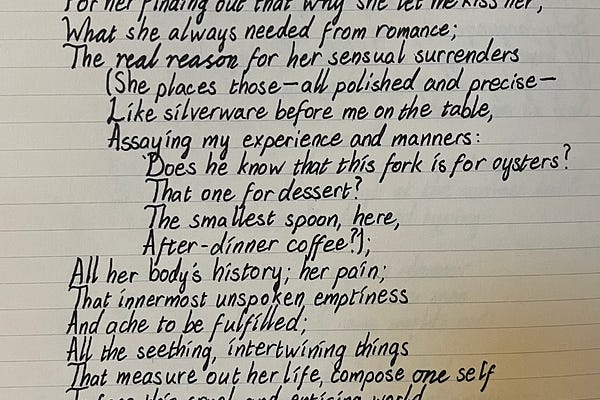 For her finding out that why she let me kiss her,
What she always needed from romance;
The real reason for her sensual surrenders
(She places those—all polished and precise—
Like silverware before me on the table,
Assaying my experience and manners:
'Does he know that this fork is for oysters?
That one for dessert?
The smallest spoon, here,
After-dinner coffee?');
All her body's history; her pain;
That innermost unspoken emptiness
And ache to be fulfilled;
All the seething, intertwining things
That measure out her life, compose one self
this cruel and enticing world